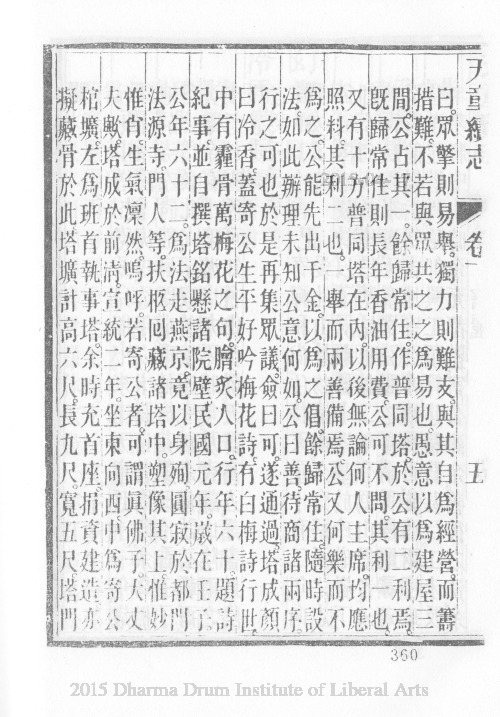 天童續志 卷一 五
曰。眾擎則易舉。獨力則難支。與其自為經營而籌
措難。不若與眾共之之為易也。愚意以為建屋三
間。公占其一。餘歸常住。作普同塔。於公有二利焉。
既歸常住。則長年香油用費。公可不問。其利一也。
又有十方普同塔在內。以後無論何人主席。均應
照料。其利二也。一舉而兩善備焉。公又何樂而不
為之。公能先出千金。以為之倡。餘歸常住。隨時設
法。如此辦理。未知公意何如。公曰善。待商諸兩序。
行之可也。於是再集眾議。僉曰可。遂通過。塔成。顏
曰冷香。蓋寄公生平好吟梅花詩。有白梅詩行世。
中有霾骨萬梅花之句。膾炙人口。行年六十。題詩
紀事。並自撰塔銘。懸諸院壁。民國元年。歲在壬子。
公年六十二。為法走燕京。竟以身殉。圓寂於都門
法源寺。門人等。扶柩回藏諸塔中。塑像其上。惟妙
惟肖。生氣凜然。嗚呼。若寄公者。可謂眞佛子。大丈
夫歟。塔成於前清宣統二年。坐東向西。中為寄公
棺壙。左為班首執事塔。余時充首座。捐資建造。亦
擬藏骨於此。塔壙計高六尺。長九尺。寬五尺。塔門
360
2015 Dharma Drum Institute of Liberal Arts